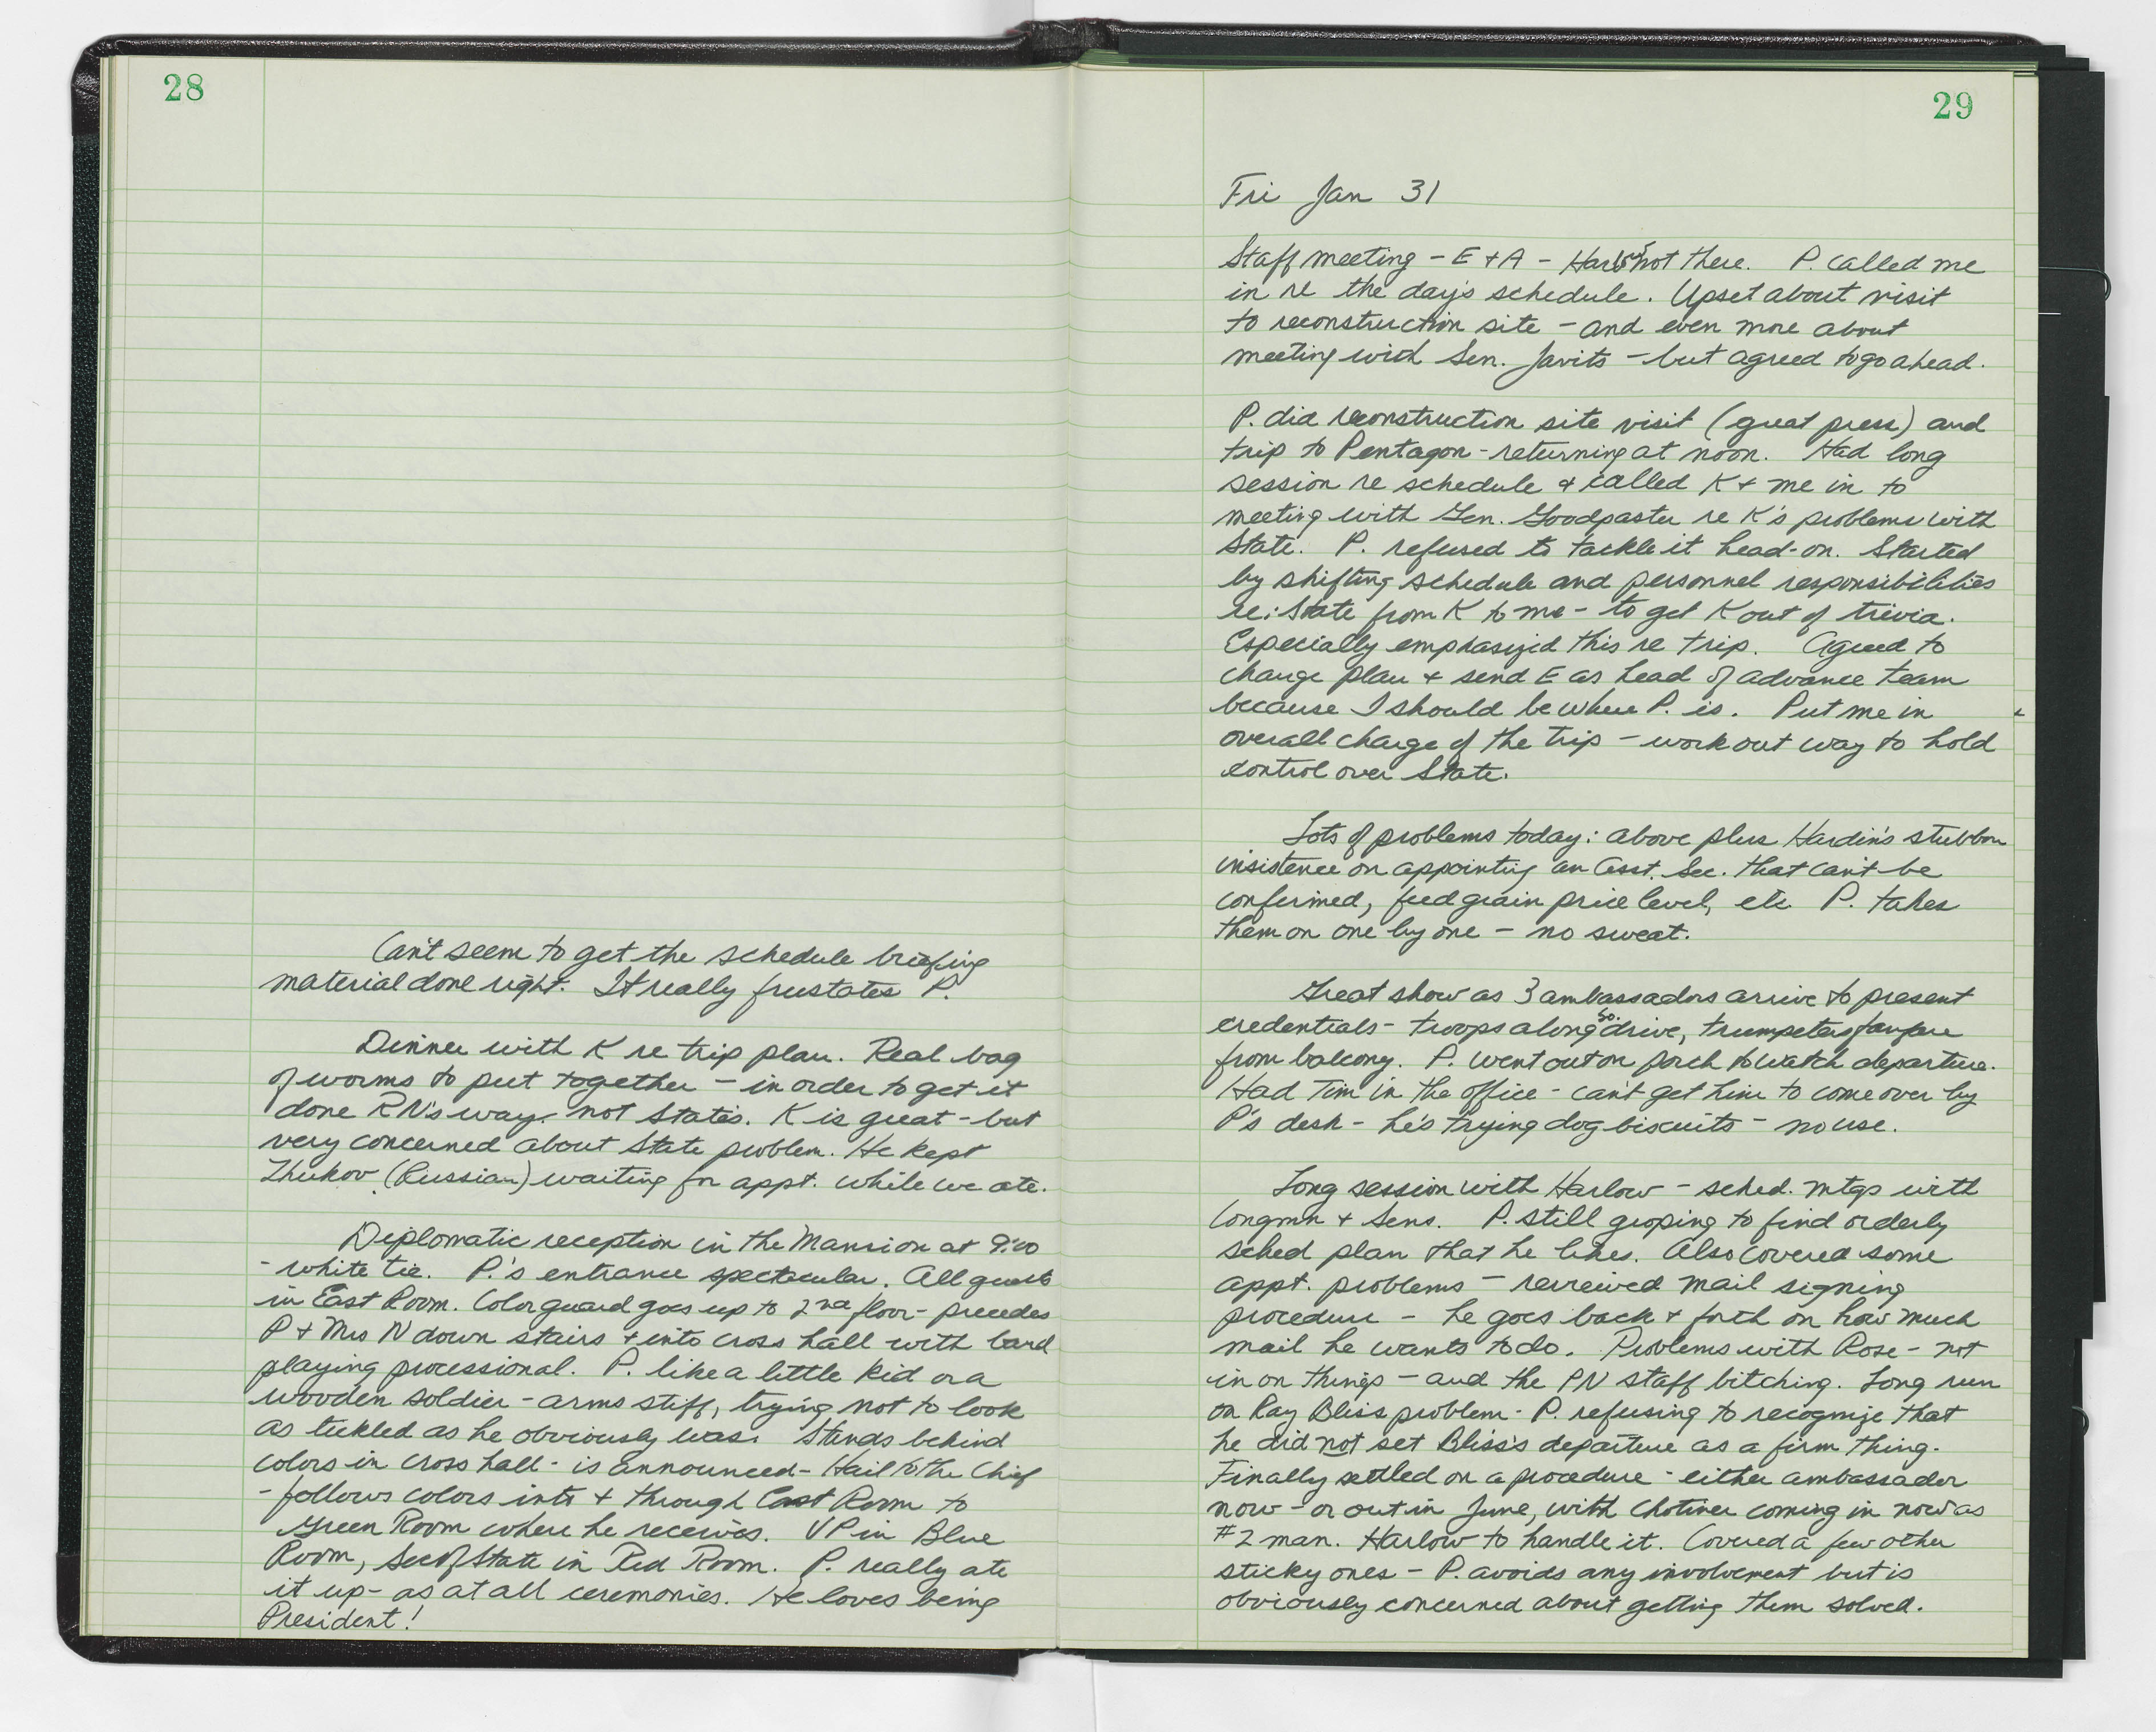 28
Can't seem to get the schedule briefing
material done right. It really frustates P.
Dinner with K re trip plan. Real bag
of worms to put together - in order to get it
done RN's way - not State's. K is great - but
very concerned about State problem. He kept
Zhukov (Russian) waiting for appt. while we ate.
Diplomatic reception in the Mansion at 9:00
- white tie. P.'s entrance spectacular. All guests
in East Room. Color guard goes up to 2nd floor - precedes
P + Mrs N down stairs + into cross hall with band
playing processional. P. like a little kid or a
wooden soldier - arms stiff, trying not to look
as tickled as he obviously was. Stands behind
colors in cross hall - is announced - Hail to the Chief
- follows colors into + through East Room to
Green Room where he receives. VP in Blue
Room, Sec of State in Red Room. P. really ate
it up - as at all ceremonies. He loves being
President!
29
Fri Jan 31
Staff meeting - E + A - not there. P. called me
in re the day's schedule. Upset about visit
to reconstruction site - and even more about
meeting with Sen. Javits - but agreed to go ahead.
P. did reconstruction site visit (great press) and
trip to Pentagon - returning at noon. Had long
session re schedule + called K + me in to
meeting with Gen. Goodpaster re K's problems with
State. P. refused to tackle it head-on. Started
by shifting schedule and personnel responsibilities
re: State from K to me - to get K out of trivia.
Especially emphasized this re trip. Agreed to
change plan + send E as head of advance team
because I should be where P. is. Put me in
overall charge of the trip - work out way to hold
control over State.
Lots of problems today: above plus Hardin's stubborn
insistence on appointing an Asst. Sec. that can't be
confirmed, feed grain price level, etc. P. takes
them on one by one - no sweat.
Great show as 3 ambassadors arrive to present
credentials - troops along so. drive, trumpeters fanfare
from balcony. P. went out on porch to watch departure.
Had Tim in the office - can't get him to come over by
P's desk - he's trying dog biscuits - no use.
Long session with Harlow - sched. mtgs with
Congmn + Sens. P. still groping to find orderly
sched plan that he likes. Also covered some
appt. problems - reviewed mail signing
procedure - he goes back + forth on how much
mail he wants to do. Problems with Rose - not
in on things - and the PN staff bitching. Long run
on Ray Bliss problem - P. refusing to recognize that
he did not set Bliss's departure as a firm thing.
Finally settled on a procedure - either ambassador
now - or out in June, with Chotiner coming in now as
#2 man. Harlow to handle it. Covered a few other
sticky ones - P. avoids any involvement but is
obviously concerned about getting them solved.